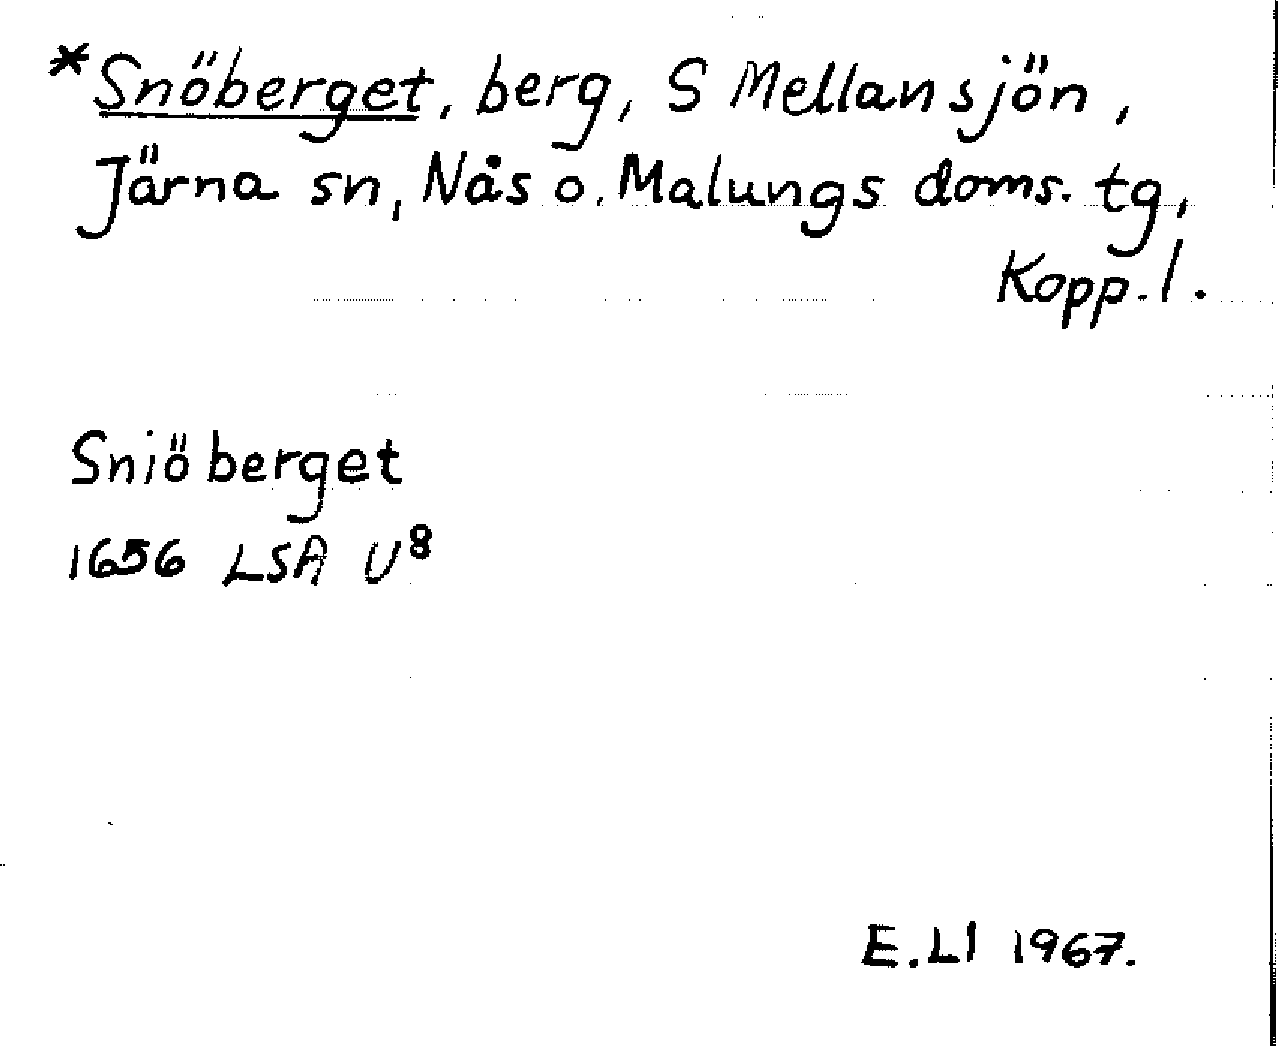 *Snöberget, berg, S Mellansjön,
Järna sn, Nås o. Malungs doms. tg,
Kopp. l.
Sniöberget
1656 LSA U8
E.Ll 1967.